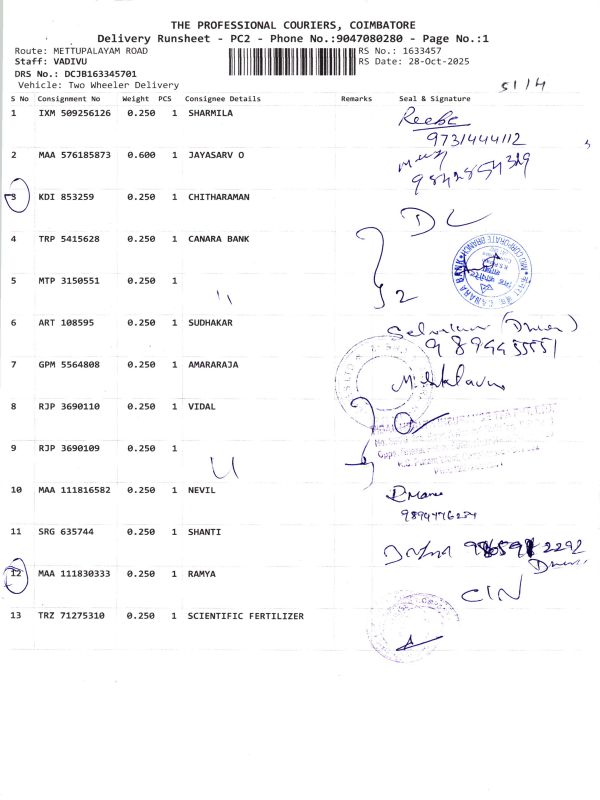 THE PROFESSIONAL COURIERS, COIMBATORE
Delivery Runsheet - PC2 - Phone No.:9047080280 - Page No.:1
Route: METTUPALAYAM ROAD RS No.: 1633457
Staff: VADIVU RS Date: 28-Oct-2025
DRS No.: DCJB163345701
Vehicle: Two Wheeler Delivery
S No Consignment No Weight PCS Consignee Details Remarks Seal & Signature
1 IXM 509256126 0.250 1 SHARMILA
9731444112
2 MAA 576185873 0.600 1 JAYASARV O
3 KDI 853259 0.250 1 CHITHARAMAN
DL
4 TRP 5415628 0.250 1 CANARA BANK
CANARA BANK
5 MTP 3150551 0.250 1 " 2
6 ART 108595 0.250 1 SUDHAKAR
(Driver)
7 GPM 5564808 0.250 1 AMARARAJA
8 RJP 3690110 0.250 1 VIDAL
9 RJP 3690109 0.250 1
10 MAA 111816582 0.250 1 NEVIL
11 SRG 635744 0.250 1 SHANTI
12 MAA 111830333 0.250 1 RAMYA
CIN
13 TRZ 71275310 0.250 1 SCIENTIFIC FERTILIZER